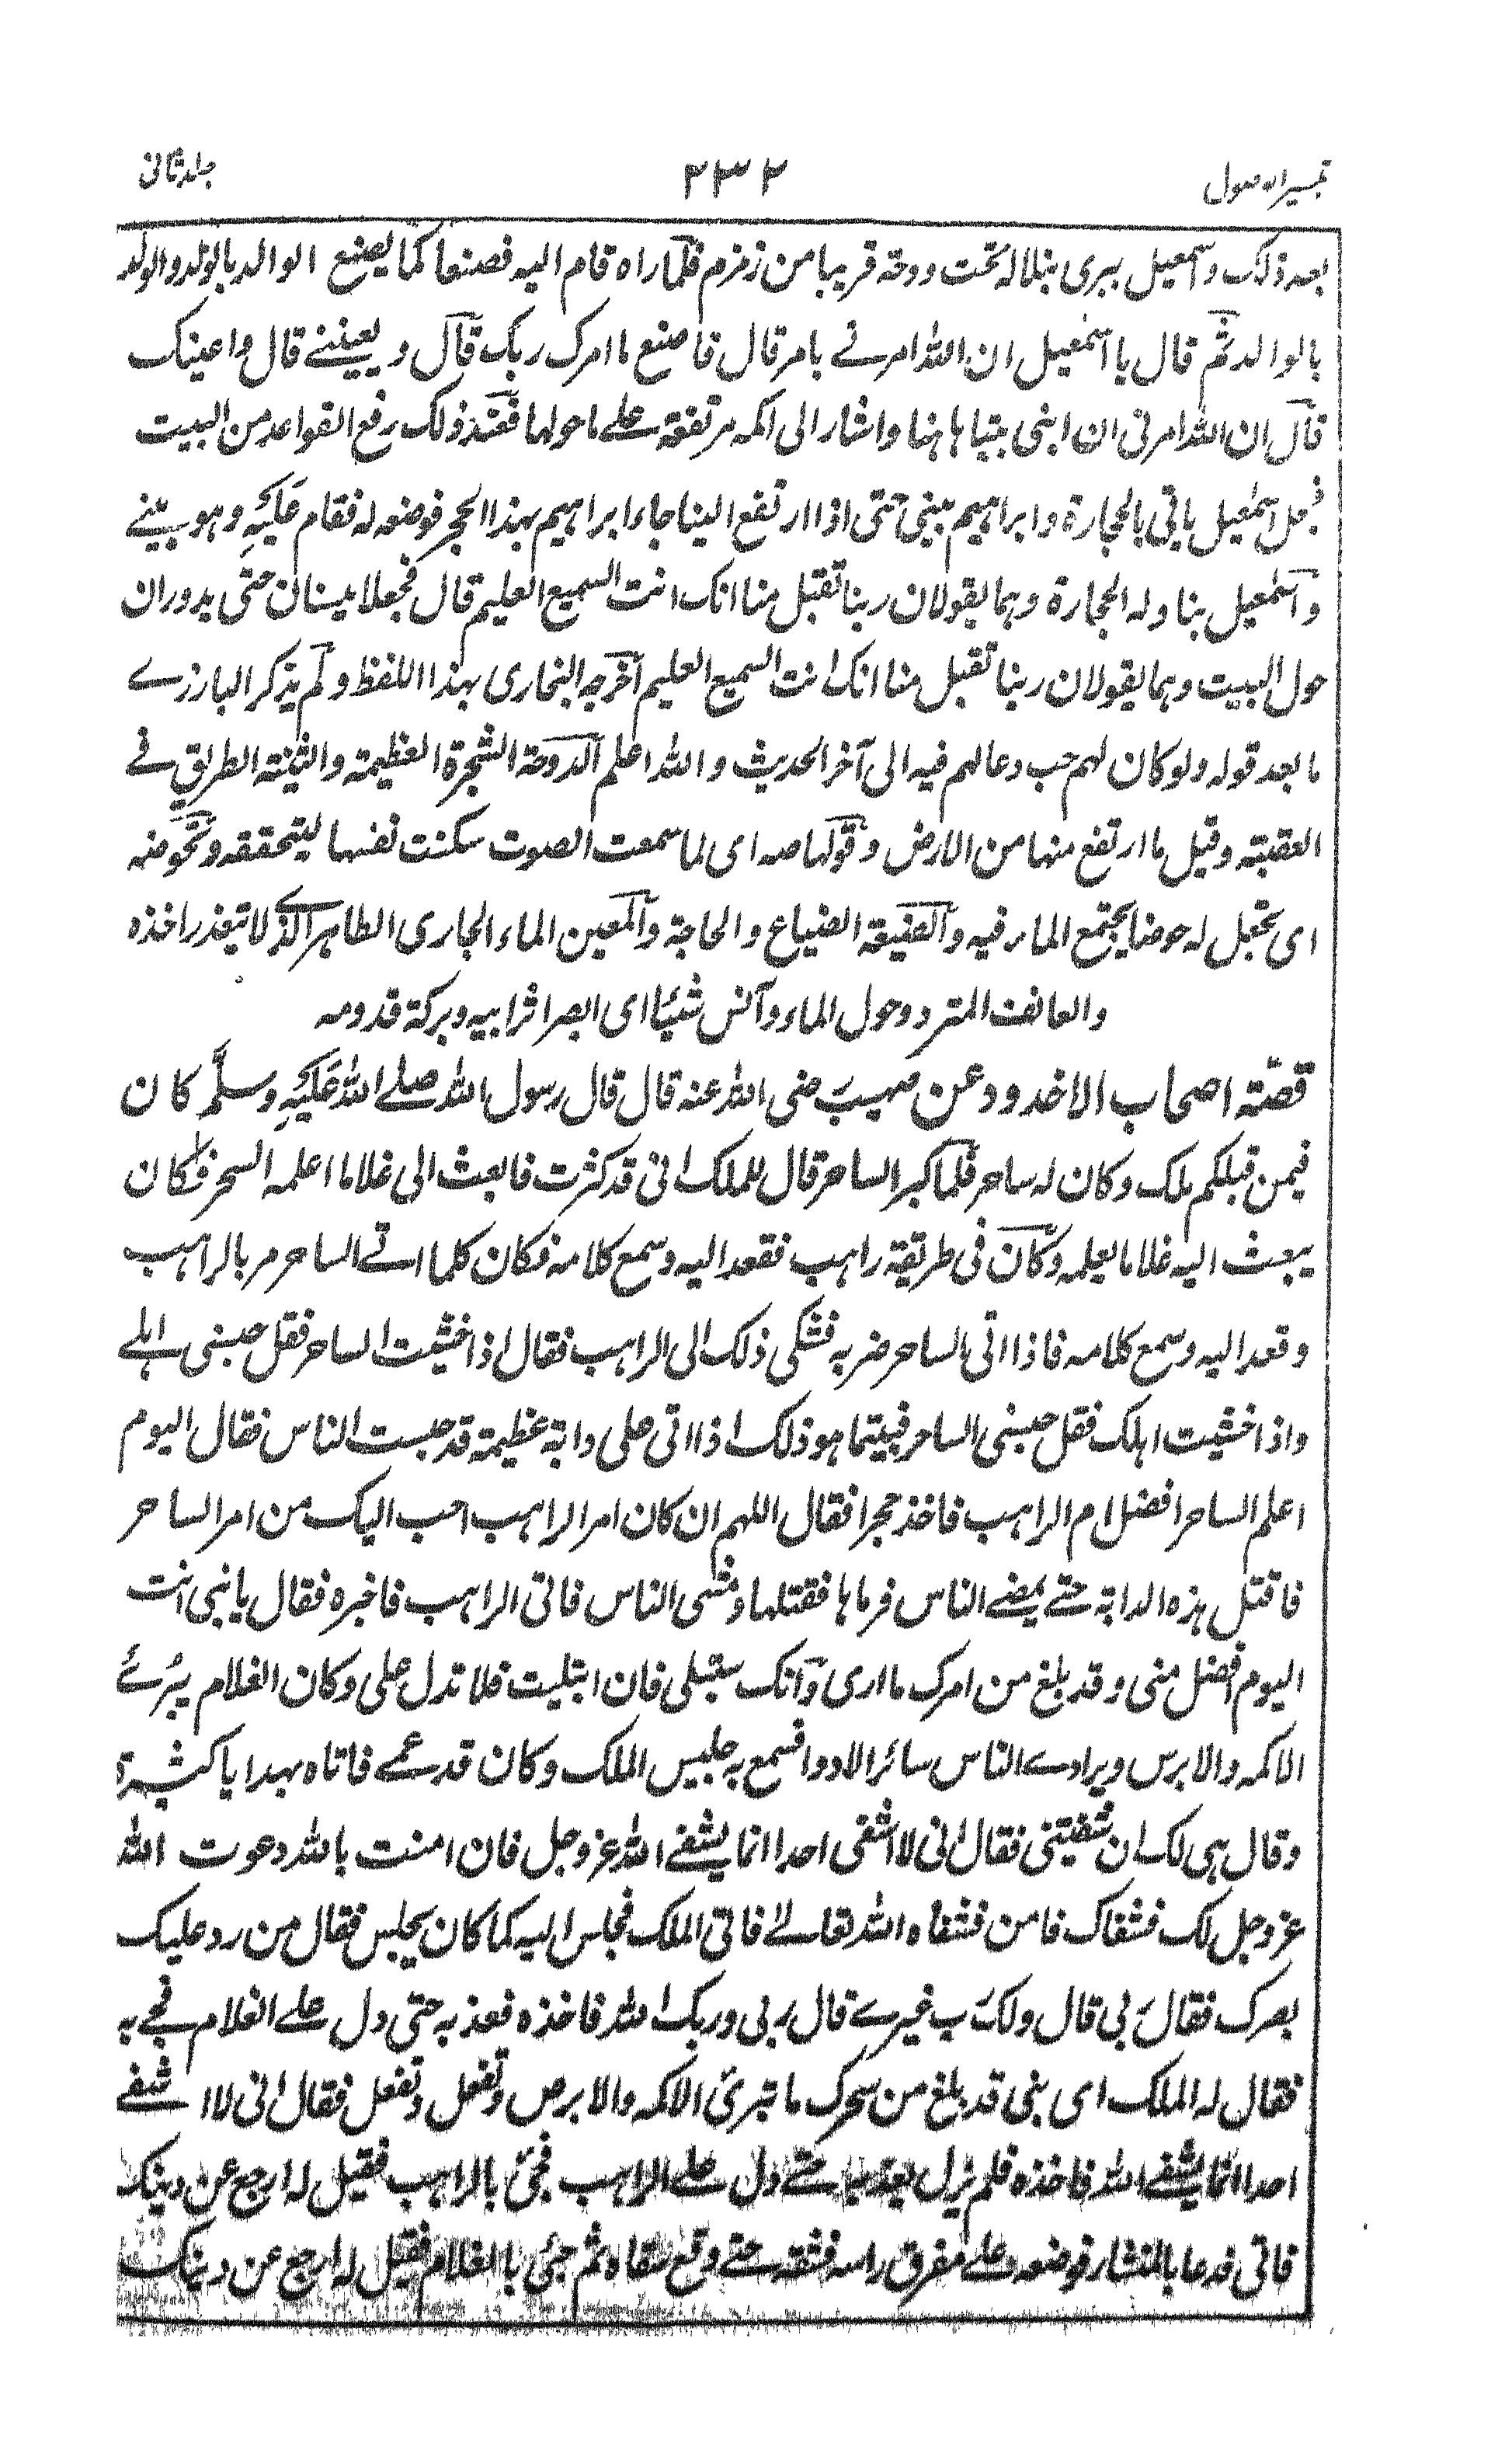 تيسير الوصول ٢٣٢ جلد ثانی
بعد ذلك واسمعيل يبرى نبلا له تحت دوحة قريبا من زمزم فلما راه قام اليه فصنعا كما يصنع الوالد بالولد والولد
بالوالد ثم قال يا اسمعيل ان الله امرنے بامر قال فاصنع ما امرك ربك قال و يعيننے قال واعينك
قال ان الله امرنى ان ابنى بيتا هاهنا واشار الى اكمه مرتفعة علے ما حولها فعند ذلك رفع القواعد من البيت
فجعل اسمعيل ياتى بالحجارة وابراهيم يبنى حتى اذا ارتفع البنا جاء ابراهيم بهذا الحجر فوضعه له فقام عَلَيْهِ وهو يبنے
واسمعيل يناوله الحجارة وهما يقولان ربنا تقبل منا انك انت السميع العليم قال فجعلا يبنيان حتى يدوران
حول البيت وهما يقولان ربنا تقبل منا انك انت السميع العليم آخرجه البخارى بهذا اللفظ ولم يذكر البارزے
ما بعد قوله ولو كان لهم حب دعا لهم فيه الى آخر الحديث والله اعلم الدوحة الشجرة العظيمة والثنية الطريق فے
العقبة وقيل ما ارتفع منها من الارض وقولها صه اى لما سمعت الصوت سكنت نفسها ليتحققه وتحوضه
اى تجعل له حوضا يجتمع الماء فيه والضيعة الضياع والحاجة والمعين الماء الجارى الطاهر الذے لا يتعذر اخذه
والعائف المتردد حول الماء وآنس شيئا اى ابصر اثر ابيه وبركة قدومه
قصّة اصحاب الاخدود عن صهيب رضى الله عنه قال قال رسول الله صلے اللهُ عَلَيْهِ وسلَّم كان
فيمن قبلكم ملك وكان له ساحر فلما كبر الساحر قال للملك انى قد كبرت فابعث الى غلاما اعلمه السحر فكان
يبعث اليه غلاما يعلمه وكان فى طريقة راهب فقعد اليه وسمع كلامه فكان كلما اتے الساحر مر بالراهب
وقعد اليه وسمع كلامه فاذا اتى الساحر ضربه فشكى ذلك الى الراهب فقال اذا خشيت الساحر فقل حبسنى اهلے
واذا خشيت اهلك فقل حبسنى الساحر فبينما هو ذلك اذا اتى على دابة عظيمة قد حبست الناس فقال اليوم
اعلم الساحر افضل ام الراهب فاخذ حجرا فقال اللهم ان كان امر الراهب احب اليك من امر الساحر
فاقتل هذه الدابة حتے يمضے الناس فرماها فقتلها ومشى الناس فاتى الراهب فاخبره فقال يا نبى انت
اليوم افضل منى وقد بلغ من امرك ما ارى وآنك ستبتلى فان ابتليت فلا تدل على وكان الغلام يبرئے
الاكمه والابرس ويداوے الناس سائر الادوا فسمع به جليس الملك وكان قد عمے فاتاه بهدايا كثيرة
وقال هى لك ان شفيتنى فقال انى لا اشفى احدا انما يشفے الله عز وجل فان امنت بالله دعوت الله
عز وجل لك فشفاك فامن فشفاه الله تعالے فاتى الملك فجلس اليه كما كان يجلس فقال من رد عليك
بصرك فقال ربى قال ولك رب غيرے قال ربى وربك الله فاخذه فعذبه حتى دل علے الغلام فجے به
فقال له الملك اى بنى قد بلغ من سحرك ما تبرئ الاكمه والابرص وتفعل وتفعل فقال انى لا اشفے
احدا انما يشفے الله فاخذه فلم يزل يعذبه حتے دل علے الراهب فجئ بالراهب فقيل له ارجع عن دينك
فاتى فدعا بالمنشار فوضعه علے مفرق راسه فشقه حتے وقع شقاه ثم جئ بالغلام فقيل له ارجع عن دينك